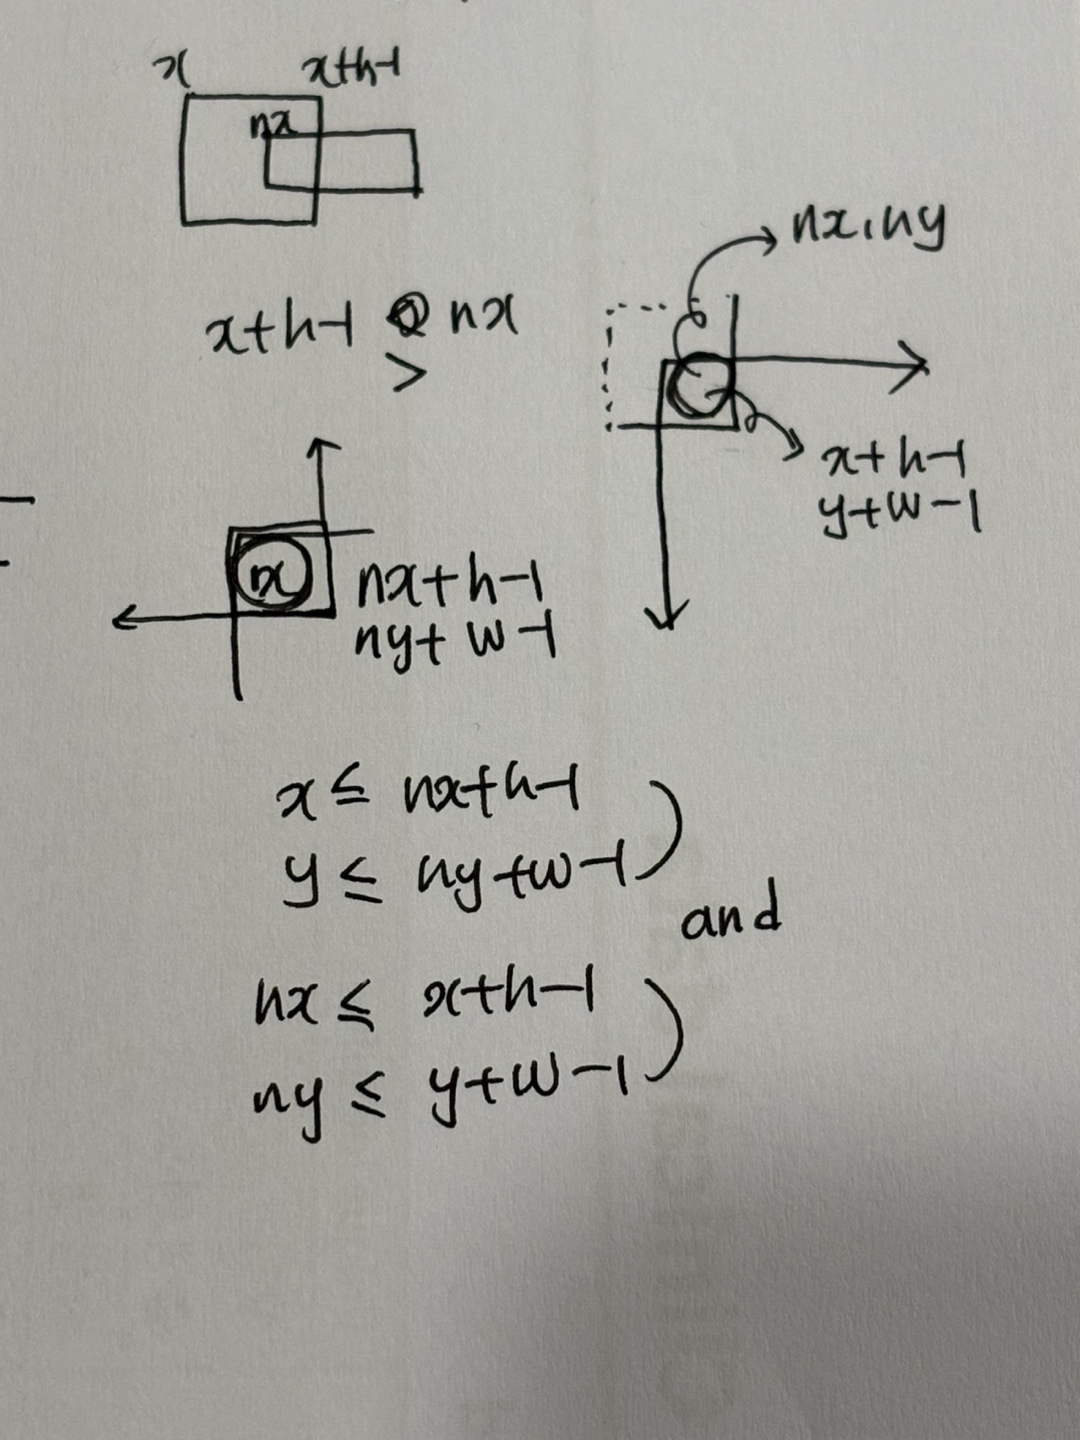 x x+h-1
nx
nx, ny
x+h-1 nx
>
x+h-1
y+w-1
x nx+h-1
ny+w-1
x ≤ nx+h-1
y ≤ ny+w-1
and
nx ≤ x+h-1
ny ≤ y+w-1